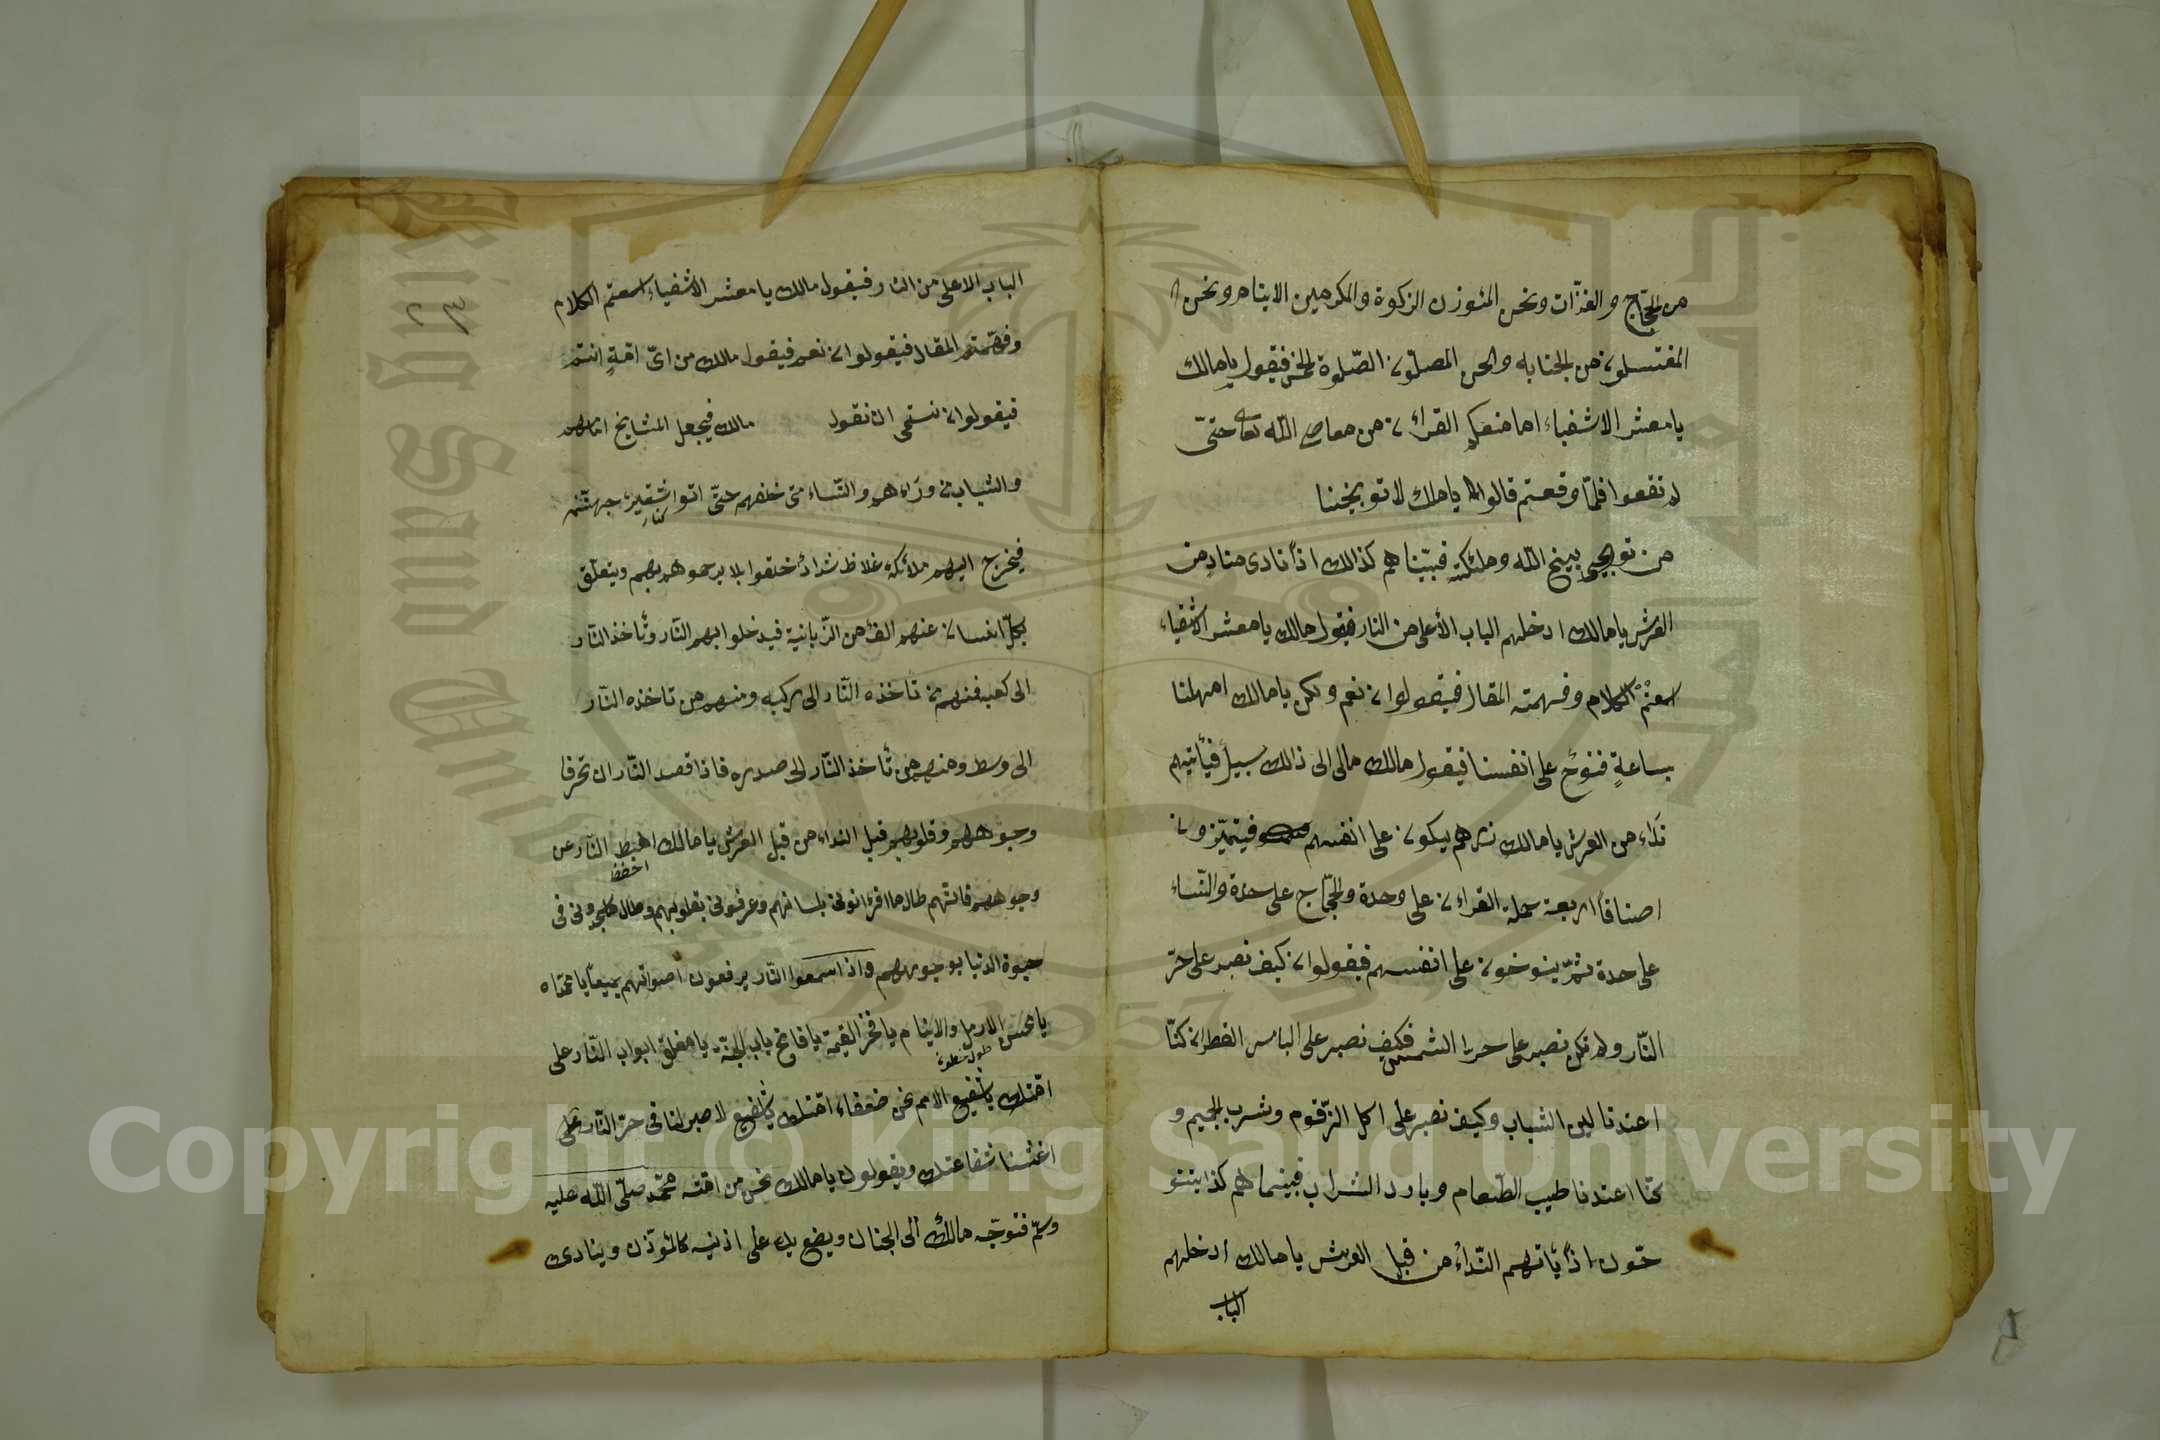 من الحجّاج والغزّات ونحن المئوزن الزكوة والمكرمين الايتام ونحن
المغتسلون من الجنابه والحن المصلّون الصّلوة الخمن فيقول يا مالك
يا معشر الاشقياء اما منعكم القرائن من معاصى اللّه تعالى حتىّ
لا تقعوا فلمّا وقعتم قالوا يا ملك لا توبخنا
من توبيخ اللّه وملئكته فبيّنا هم كذالك اذًا نادى منادٍ من
العرش يا مالك ادخلهم الباب الأعلى من النار فيقول مالك يا معشر الاشقياء
اسمعتُمْ الكلام وفهمته المقال فيقولوان نعم ولكن يا مالك امهلنا
بساعةٍ فننوّح على انفسنا فيقول مالك مالى الى ذالك سبيلٌ فيأتيهم
نَداء من العرش يا مالك ذرهم يبكون على انفسهم فيتميّزون
اصنافًا اربعة حملة القراءن على وحدة والحجّاج على حدة والنّساء
على حدة ثمّ ينوخون على انفسهم فيقولوان كيف نصبر على حرّ
النّار ولم نكن نصبر على حرّ الشمس فكيف نصبر على الباس القطران كنّا
اعندنا لين الشباب وكيف نصبر على اكل الزّقوم وشرب الحميم و
كنّا اعتدنا طيب الطّعام وبارد الشراب فبينما هم كذا ينو
حون اذًا يأتهم النّداءُ من قبل العرش يا مالك ادخلهم
الباب
الباب الاعلى من النار فيقول مالك يا معشر الاشقياء اسمعتم الكلام
وفهّمتم المقال فيقولوان نعم فيقول مالك من اىّ امّةٍ انتم
فيقولوان نستحى ان نقول مالك فيجعل المشايخ امامهم
والشباب من وراءهم والنّساء من خلفهم حتّى اتوا شفير جهنّم
كنار
فيخرج اليهم ملائكة غلاظ شدادٌ خلقوا بلا يرحموهم بهم ويتعلّق
بكلّ انسان عنهم الفٌ من الزّبانية فيدخلوا بهم النّار وتأخذ النّار
الى كعبه فمنهم من تاخذه النّار الى ركبه ومنهم من تاخذه النّار
الى وسط ومنهم من تأخذ النّار الى صدره فاذا قصد النّار ان تحرقا
وجوههم وقلوبهم قبل النداء من قبل العرش يا مالك اهبط النّار عن
اخفظ
وجوههم فانّهم طال ما اقرانونى بلسانهم وعرفونى بقلوبهم وطال ما سجدونى فى
حيوة الدنيا بوجوههم واذا سمعوا النّار يرفعون اصواتهم جميعًا يا محمّداه
يا محسن الارمل والايتام يا فخز القيمة يا فاتح باب الجنّة يا مغلق ابواب النّار على
امّتك يا شفيع الامم نحن ضعفاء امّتك يا شفيع لا صبر لنا فى حرّ النّار على
اغثنا شفاعتك ويقولون يا مالك نحن من امّة محمّد صلّى اللّه عليه
وسلّم فتوجّه مالك الى الجنان ويضع يده على اذنيه كالمؤذّن وينادى
Copyright © King Saud University
King Saud University
1957